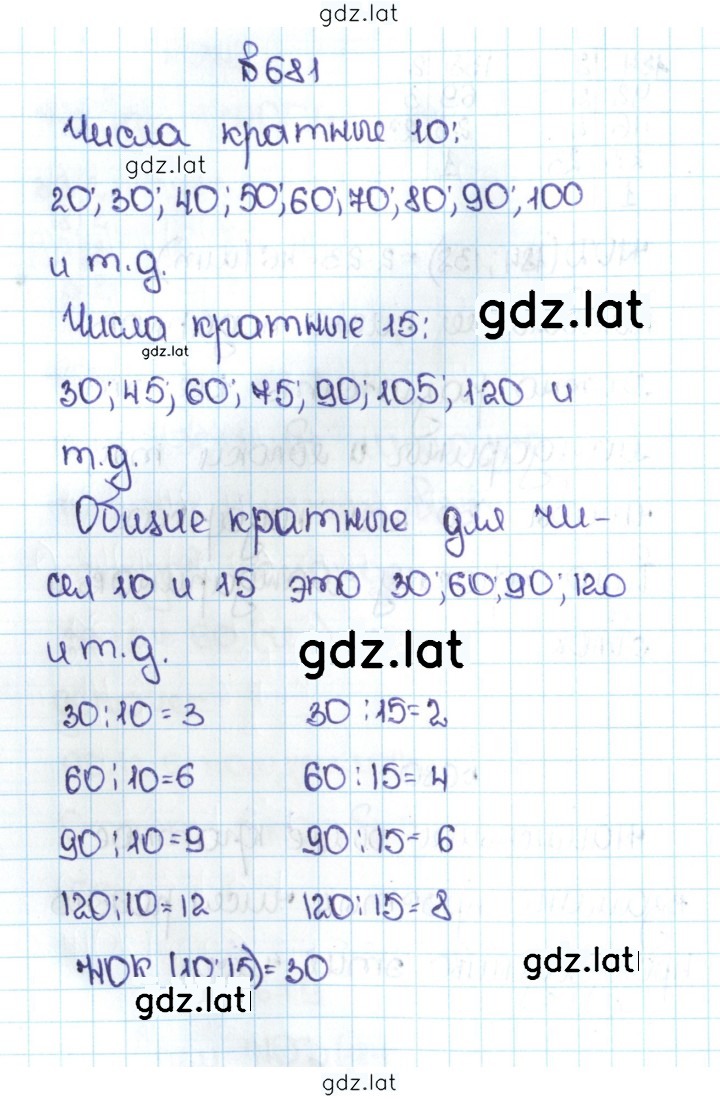 gdz.lat
В 681
Числа кратные 10:
gdz.lat
20; 30; 40; 50; 60; 70; 80; 90; 100
и т.д.
gdz.lat
Числа кратные 15:
gdz.lat
30; 45; 60; 75; 90; 105; 120 и
т.д.
Общие кратные для чи-
сел 10 и 15 это 30; 60; 90; 120
и т.д.
gdz.lat
30:10=3 30:15=2
60:10=6 60:15=4
90:10=9 90:15=6
120:10=12 120:15=8
НОК (10;15)=30
gdz.lat
gdz.lat
gdz.lat